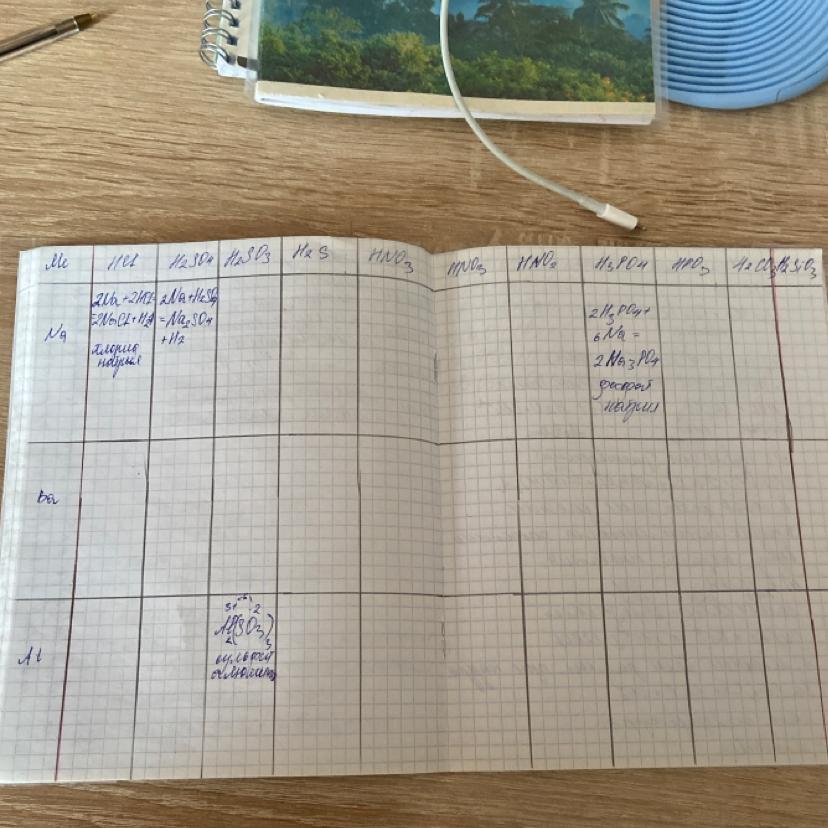 Me HCl H₂SO₄ H₂SO₃ H₂S HNO₃ HNO₃ HNO₂ H₃PO₄ HPO₃ H₂CO₃ H₂SiO₃
Na
2Na+2HCl
=2NaCl+H₂↑
хлорид
натрия
2Na+H₂SO₄
=Na₂SO₄
+H₂
2H₃PO₄+
6Na=
2Na₃PO₄
фосфат
натрия
Ba
Al
3+ 2
Al₂(SO₃)₃
сульфит
алюминия